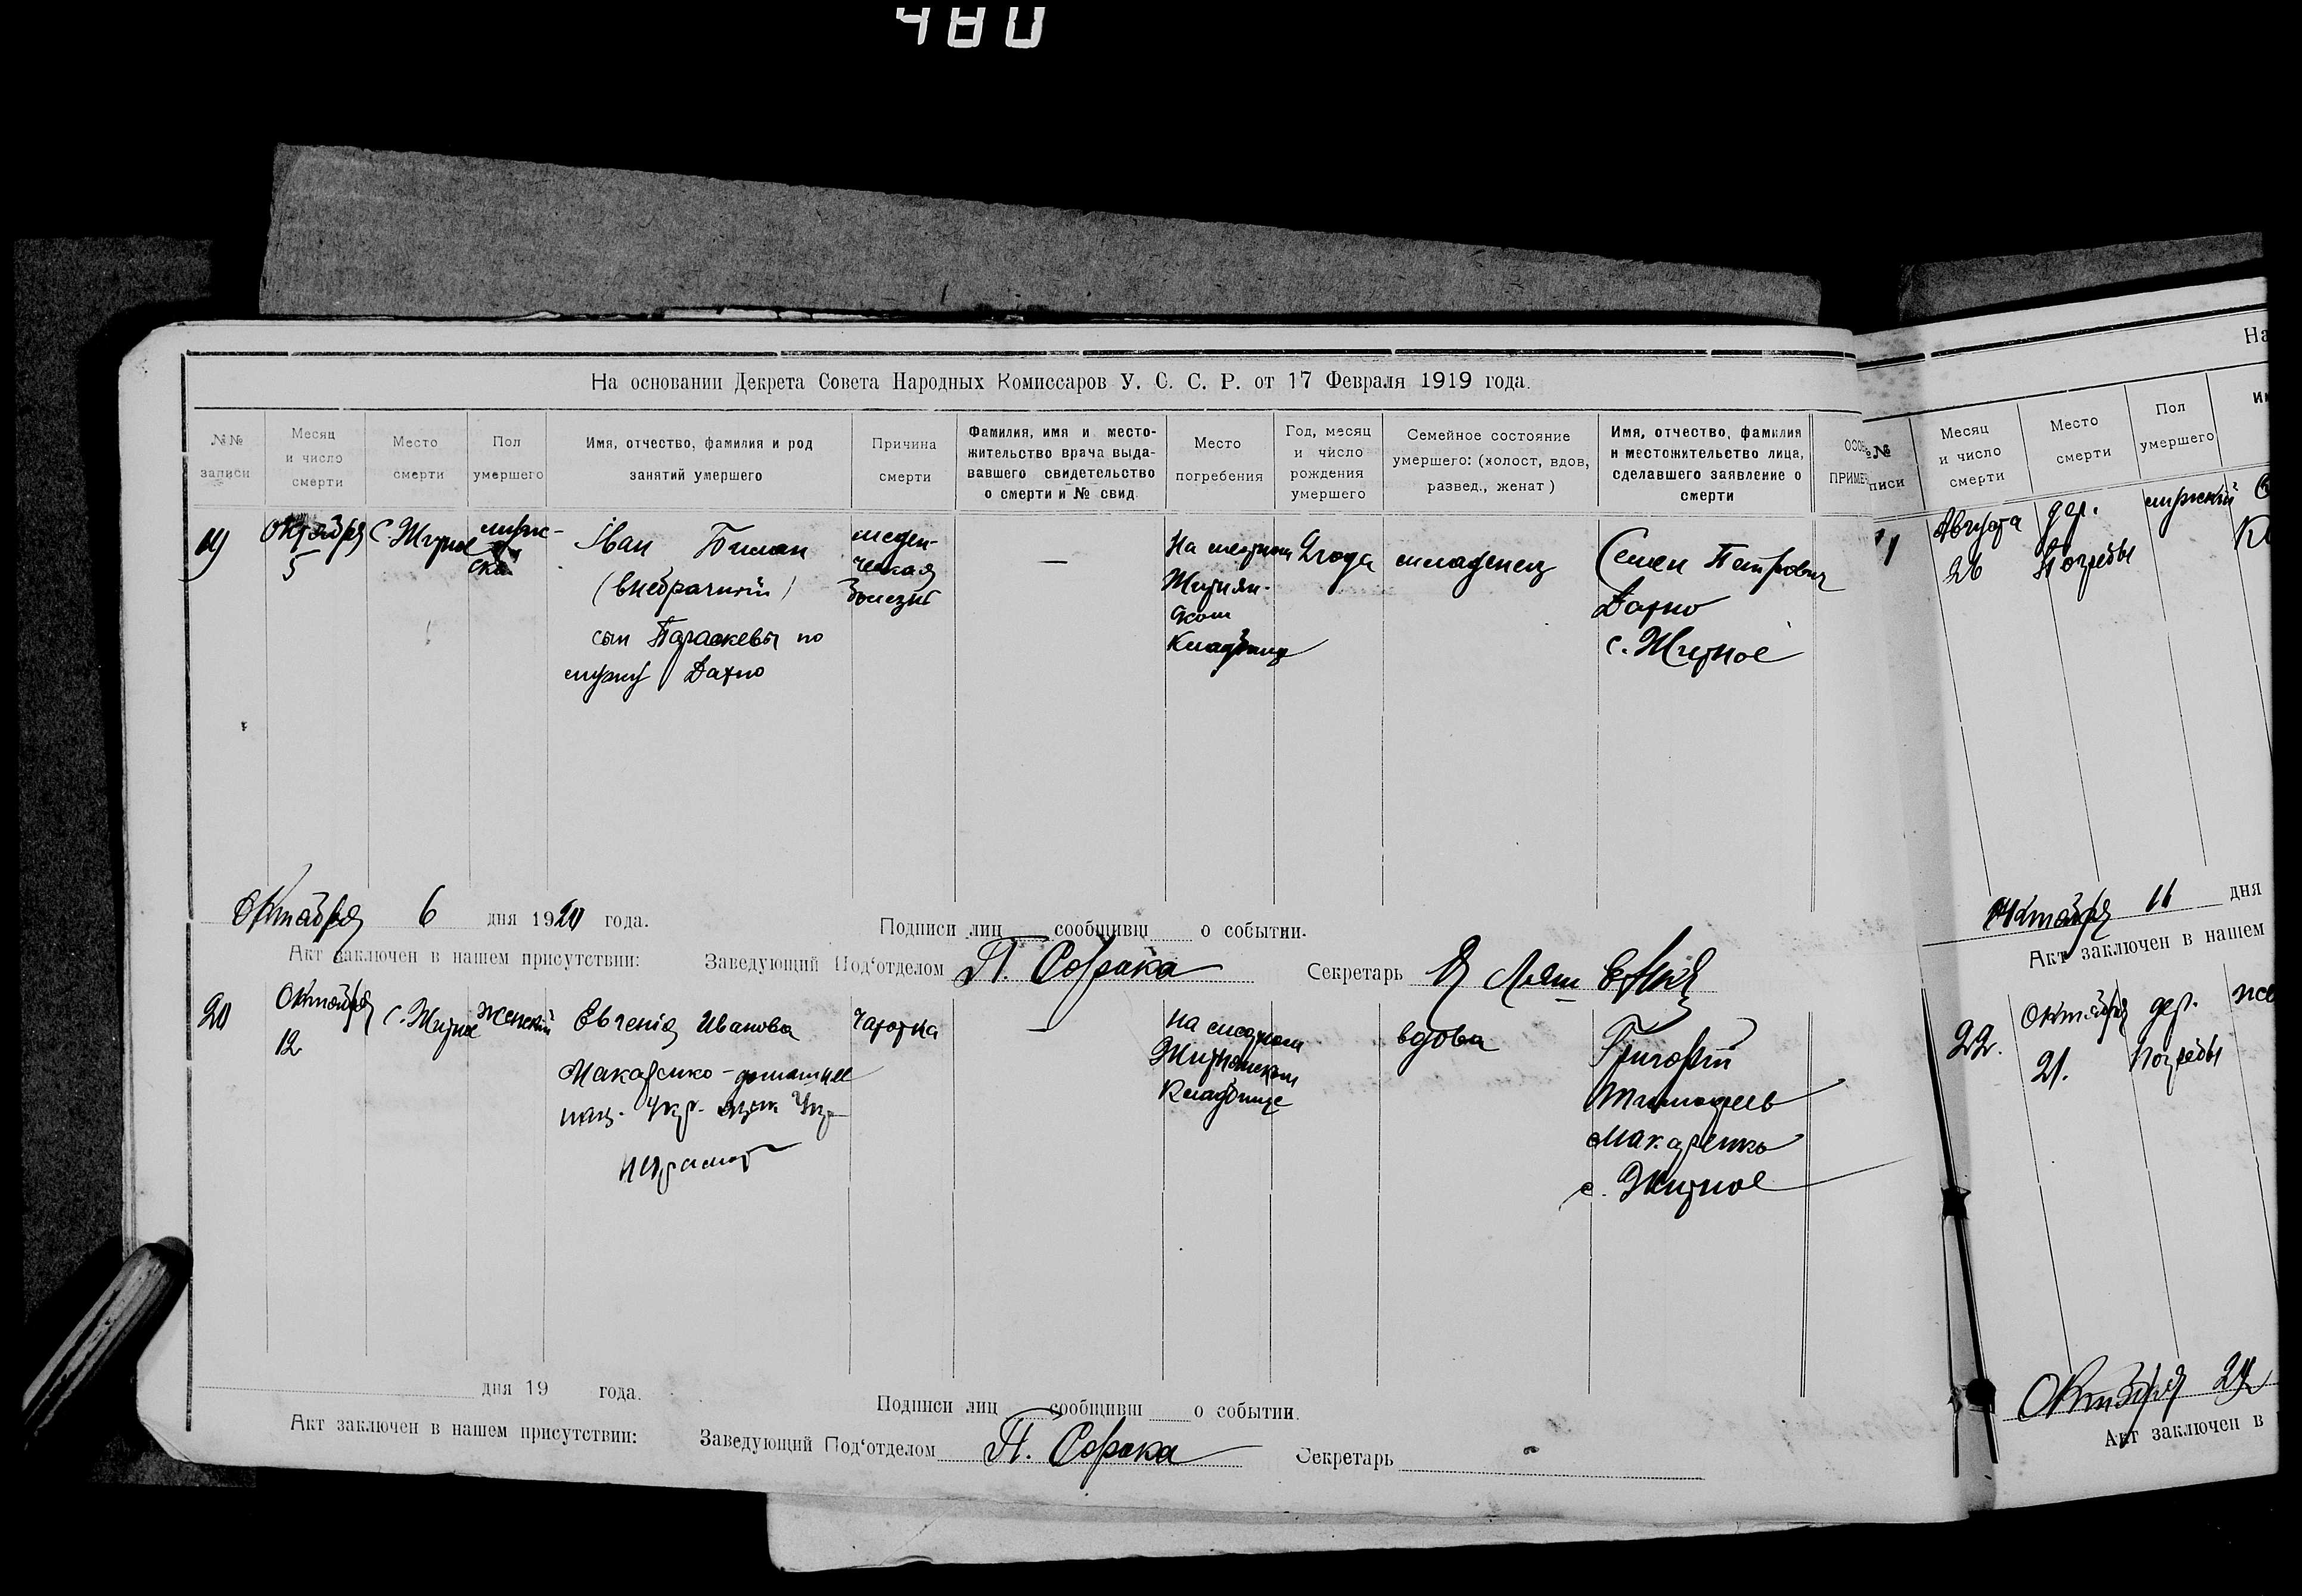 480
На основании Декрета Совета Народных Комиссаров У. С. С. Р. от 17 Февраля 1919 года.
№№ записи
Месяц и число смерти
Место смерти
Пол умершего
Имя, отчество, фамилия и род занятий умершего
Причина смерти
Фамилия, имя и место-
жительство врача выда-
вавшего свидетельство
о смерти и № свид.
Место погребения
Год, месяц и число рождения умершего
Семейное состояние умершего: (холост, вдов, развед., женат)
Имя, отчество, фамилия
и местожительство лица,
сделавшего заявление о
смерти
19
Октября
5
с. Житное
Іван
(внебрачный)
сын Параскевы по
мужу Дахно
болезнь
—
На местном
Житнян-
ском
Кладбище
2 года
младенец
Семен Петрович
Дахно
с. Житное
Октября 6 дня 1920 года.
Подписи лиц сообщивш о событии.
Акт заключен в нашем присутствии:
Заведующий Под‘отделом П. Сорока
Секретарь
20
Октября
12
с. Житное
женский
Евгенія Иванова
Макаренко -
нац. Укр. язык Укр
чахотка
—
на местном
Житнянском
Кладбище
вдова
Григорій
Макаренко
с. Житное
дня 19 года.
Подписи лиц сообщивш о событии.
Акт заключен в нашем присутствии:
Заведующий Под‘отделом П. Сорока
Секретарь
На
№
писи
Месяц и число смерти
Место смерти
Пол умершего
Августа
26
дер.
Погребы
мужский
Октября 11 дня
Акт заключен в нашем
22.
Октября
21.
дер.
Погребы
же
Октября 24
Акт заключен в